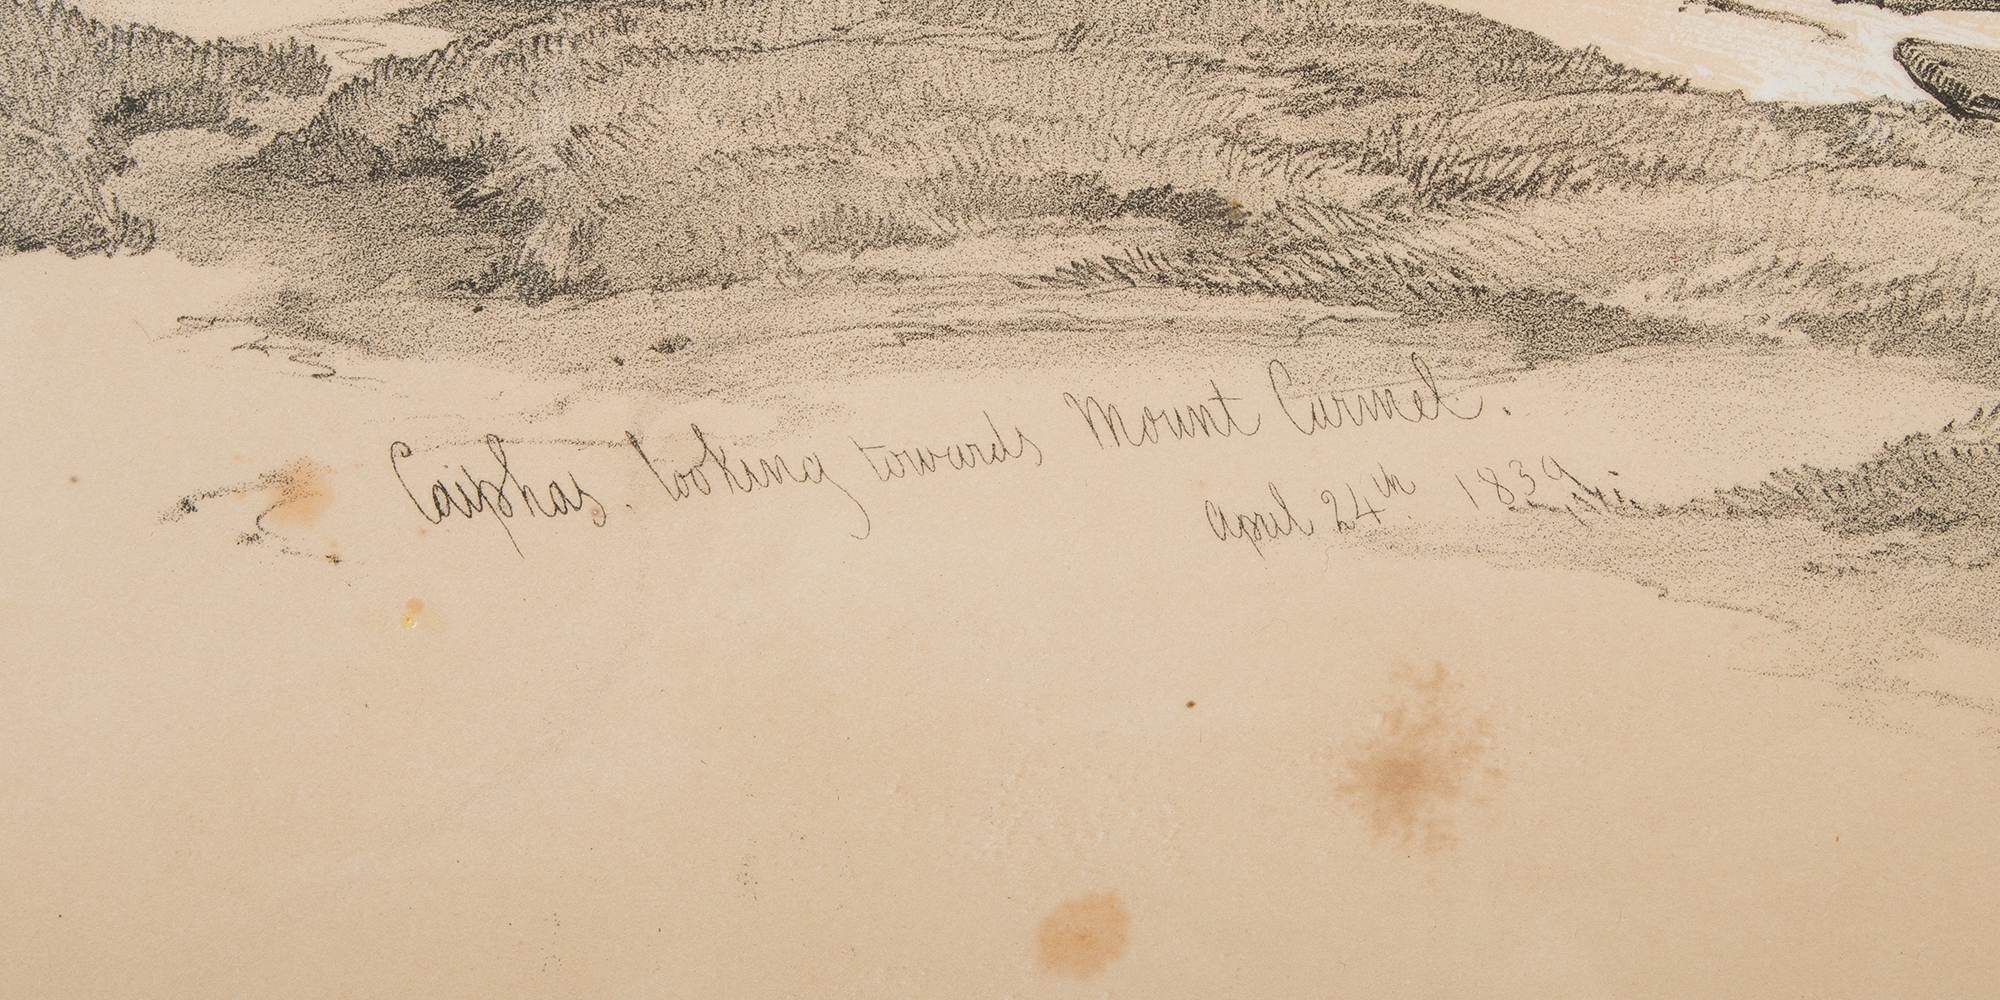 Caiphas. looking towards Mount Carmel.
April 24th 1839